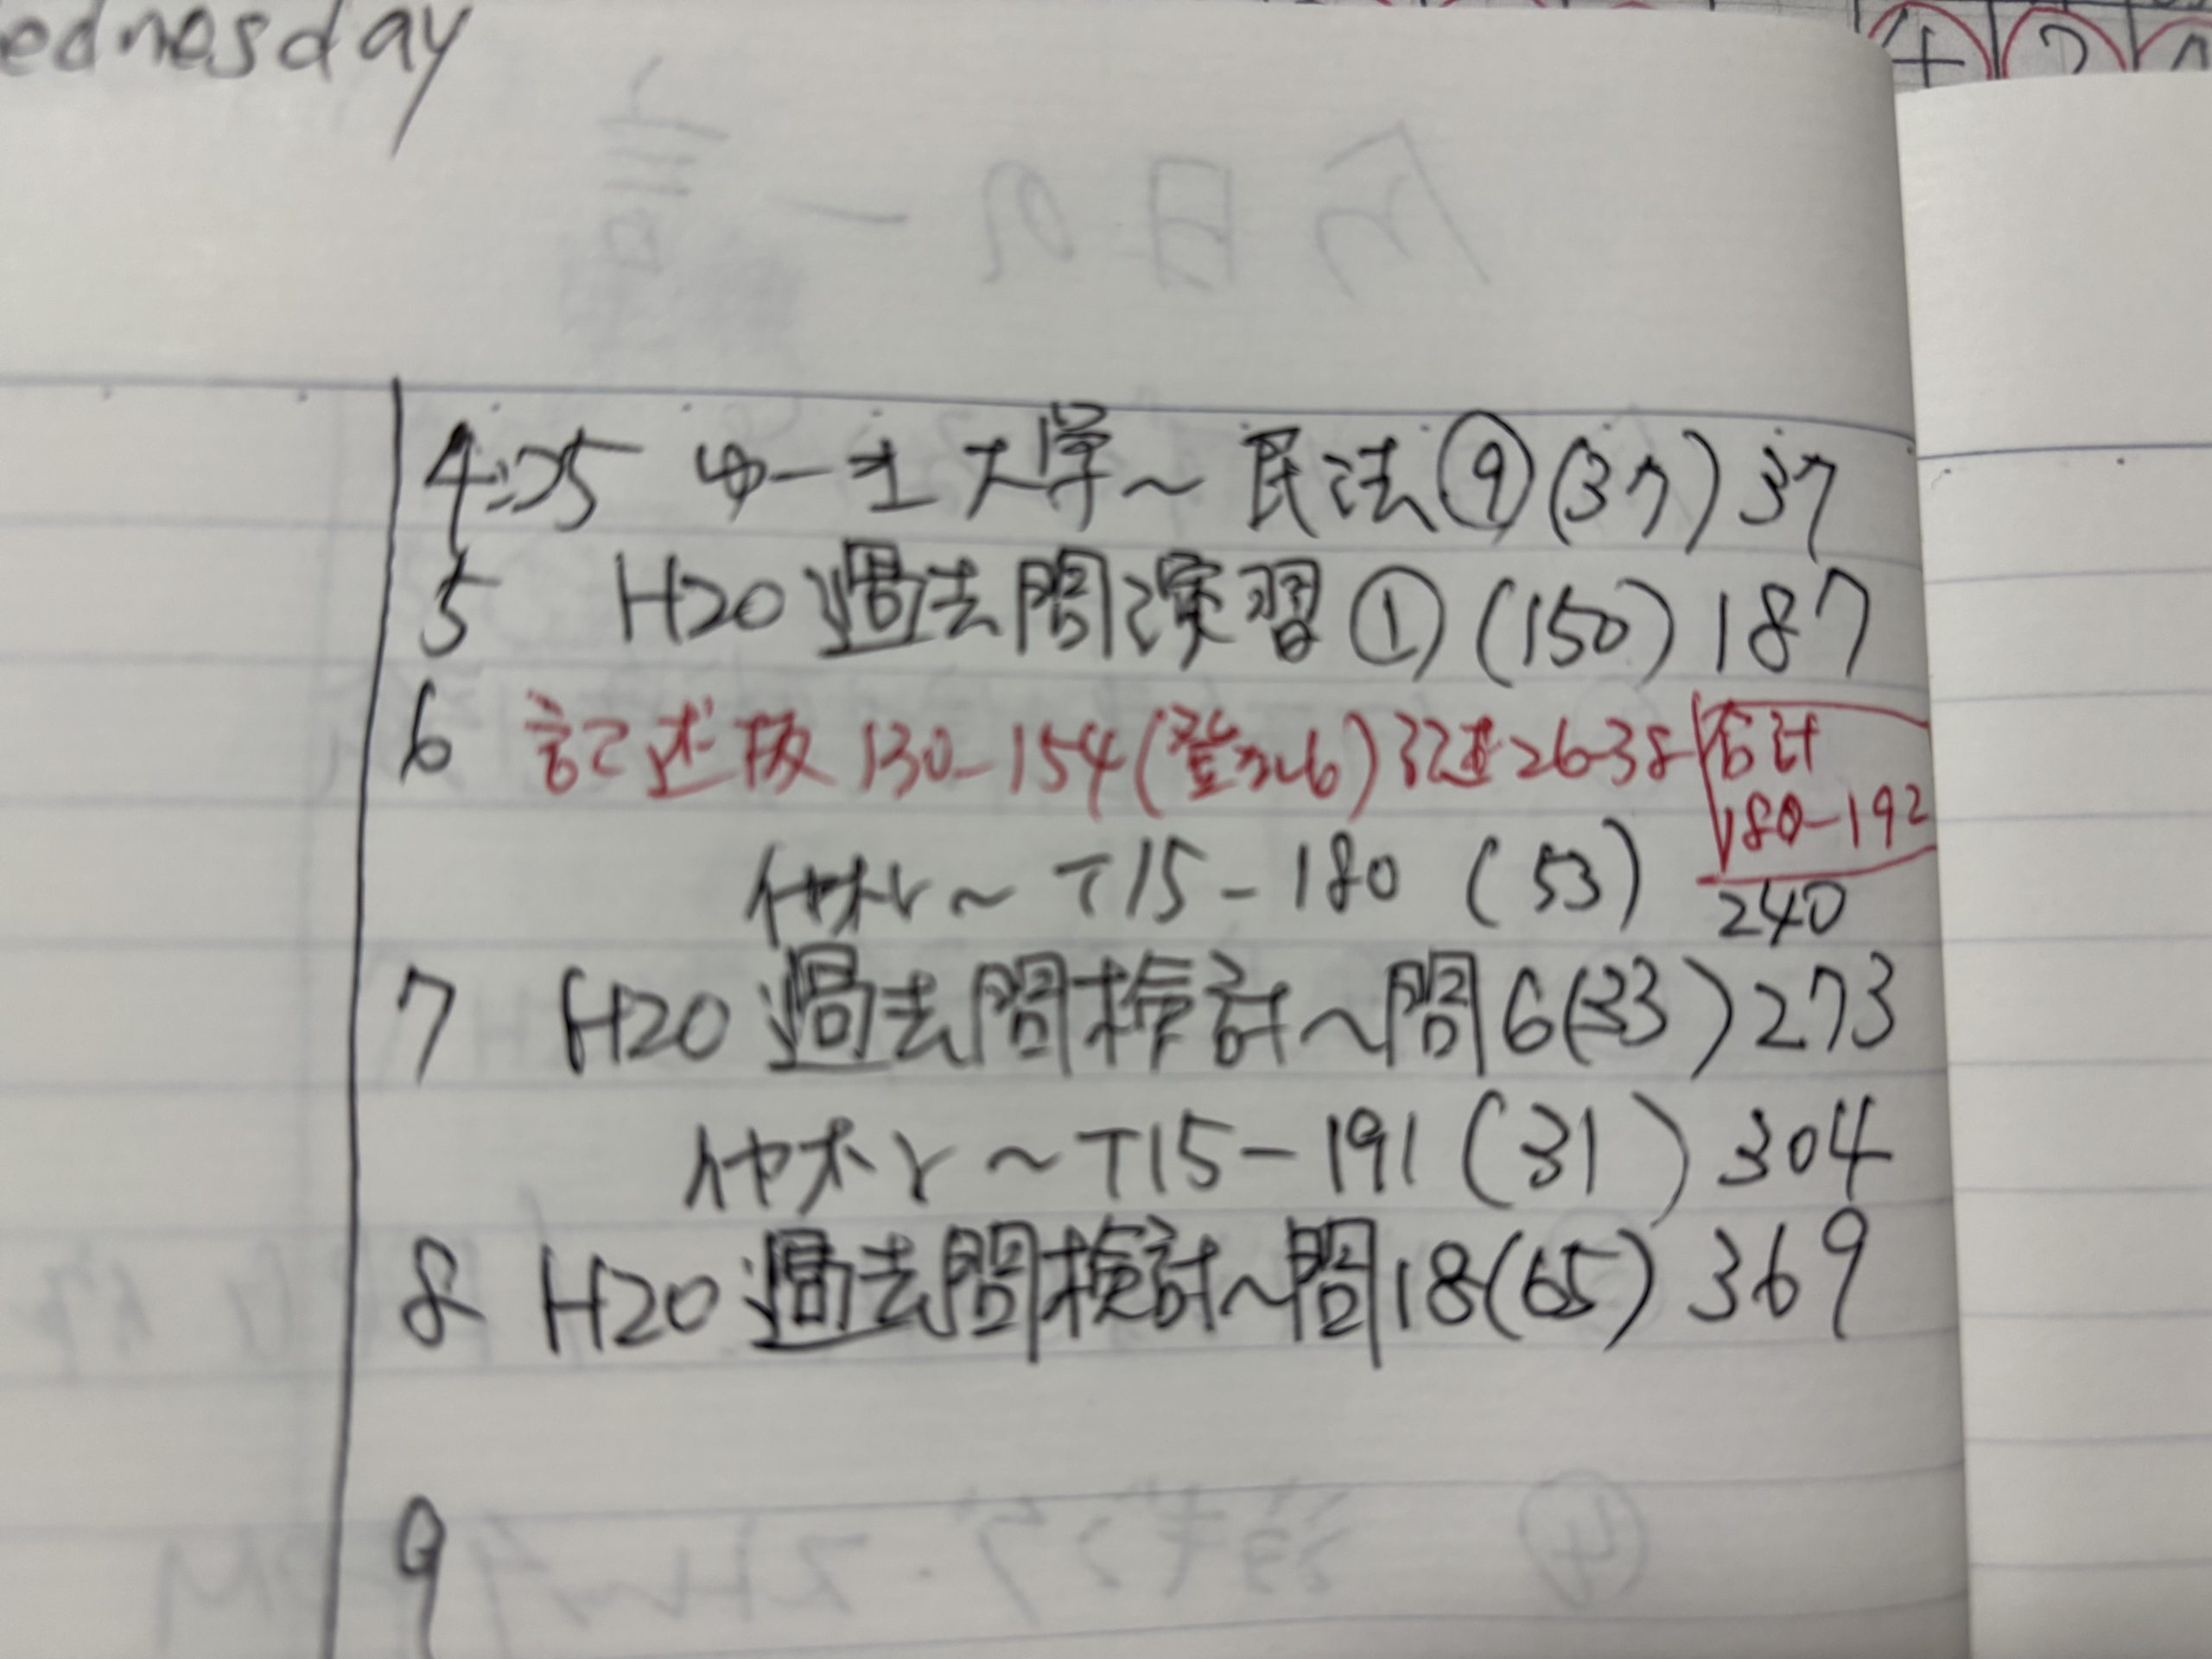 ednesday
4:25 ゆーき大学~民法⑨(37) 37
5 H20過去問演習①(150) 187
6 記述抜 130-154 記述26-38 合計
180-192
イヤホン~T15-180 (53) 240
7 H20過去問検討~問6(33) 273
イヤホン~T15-191 (31) 304
8 H20過去問検討~問18(65) 369
9